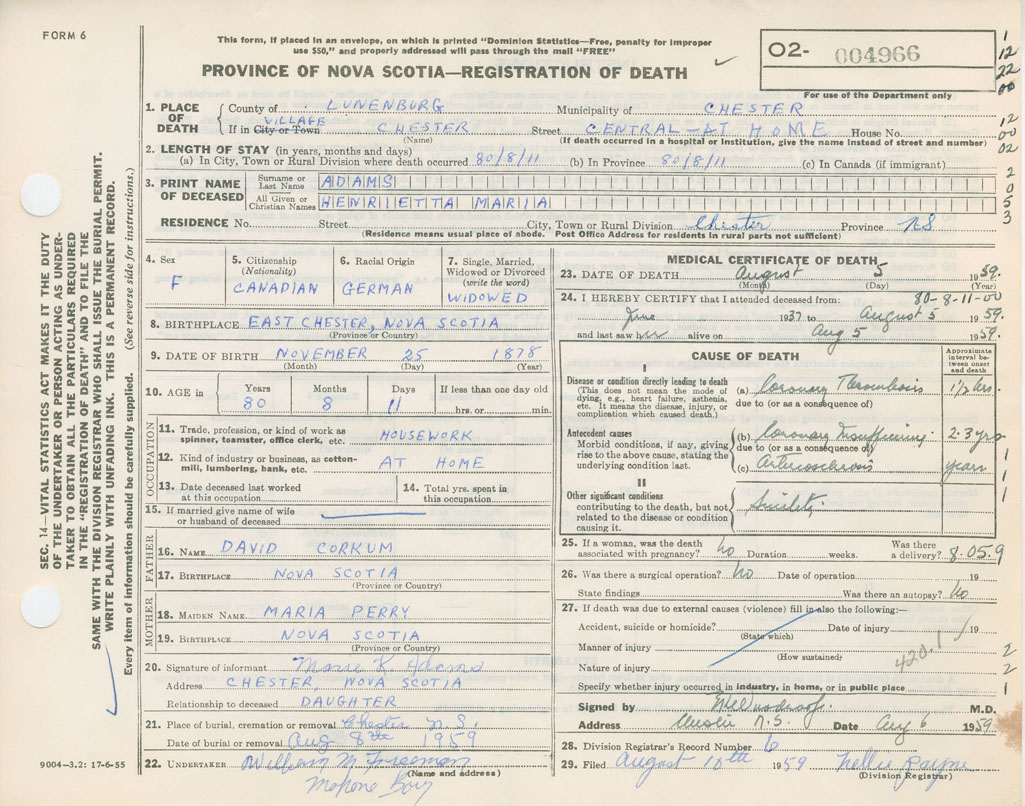 FORM 6
This form, if placed in an envelope, on which is printed "Dominion Statistics—Free, penalty for improper
use $50," and properly addressed will pass through the mail "FREE"
PROVINCE OF NOVA SCOTIA—REGISTRATION OF DEATH
O2- 004966
For use of the Department only
1
12
22
00
12
00
02
2
0
5
3
1. PLACE OF DEATH
County of LUNENBURG Municipality of CHESTER
VILLAGE
If in City or Town CHESTER Street CENTRAL - AT HOME House No.
(Name) (If death occurred in a hospital or institution, give the name instead of street and number)
2. LENGTH OF STAY (in years, months and days)
(a) In City, Town or Rural Division where death occurred 80/8/11 (b) In Province 80/8/11 (c) In Canada (if immigrant)
3. PRINT NAME OF DECEASED
Surname or Last Name ADAMS
All Given or Christian Names HENRIETTA MARIA
RESIDENCE No. Street City, Town or Rural Division Chester Province NS
(Residence means usual place of abode. Post Office Address for residents in rural parts not sufficient)
4. Sex
F
5. Citizenship
(Nationality)
CANADIAN
6. Racial Origin
GERMAN
7. Single, Married,
Widowed or Divorced
(write the word)
WIDOWED
8. BIRTHPLACE EAST CHESTER, NOVA SCOTIA
(Province or Country)
9. DATE OF BIRTH NOVEMBER 25 1878
(Month) (Day) (Year)
10. AGE in
Years Months Days If less than one day old
80 8 11 hrs. or min.
OCCUPATION
11. Trade, profession, or kind of work as
spinner, teamster, office clerk, etc. HOUSEWORK
12. Kind of industry or business, as cotton-
mill, lumbering, bank, etc. AT HOME
13. Date deceased last worked
at this occupation
14. Total yrs. spent in
this occupation
15. If married give name of wife
or husband of deceased
FATHER
16. NAME DAVID CORKUM
17. BIRTHPLACE NOVA SCOTIA
(Province or Country)
MOTHER
18. MAIDEN NAME MARIA PERRY
19. BIRTHPLACE NOVA SCOTIA
(Province or Country)
20. Signature of informant Marie K Adams
Address CHESTER, NOVA SCOTIA
Relationship to deceased DAUGHTER
21. Place of burial, cremation or removal Chester N.S.
Date of burial or removal Aug 8th 1959
22. UNDERTAKER William M Freeman
(Name and address)
Mahone Bay
MEDICAL CERTIFICATE OF DEATH
23. DATE OF DEATH August 5 1959.
(Month) (Day) (Year)
80-8-11-00
24. I HEREBY CERTIFY that I attended deceased from:
June 1937 to August 5 1959.
and last saw her alive on Aug 5 1959.
CAUSE OF DEATH
Approximate
interval be-
tween onset
and death
I
Disease or condition directly leading to death
(This does not mean the mode of
dying, e.g., heart failure, asthenia,
etc. It means the disease, injury, or
complication which caused death.)
(a) Coronary Thrombosis 1½ hrs.
due to (or as a consequence of)
Antecedent causes
Morbid conditions, if any, giving
rise to the above cause, stating the
underlying condition last.
(b) Coronary Insufficiency 2-3 yrs
due to (or as a consequence of)
(c) Arteriosclerosis years
1
1
II
Other significant conditions
contributing to the death, but not
related to the disease or condition
causing it.
Senility
25. If a woman, was the death
associated with pregnancy? No Duration weeks. Was there
a delivery? 8.05.9
26. Was there a surgical operation? No Date of operation 19
State findings Was there an autopsy? No
27. If death was due to external causes (violence) fill in also the following:—
Accident, suicide or homicide? Date of injury 19
(State which)
Manner of injury
(How sustained)
420.1
Nature of injury
Specify whether injury occurred in industry, in home, or in public place
2
2
1
Signed by M.D.
Address Chester N.S. Date Aug 6 1959
28. Division Registrar's Record Number 6
29. Filed August 10th 1959 Nellie Payne
(Division Registrar)
SEC. 14—VITAL STATISTICS ACT MAKES IT THE DUTY
OF THE UNDERTAKER OR PERSON ACTING AS UNDER-
TAKER TO OBTAIN ALL THE PARTICULARS REQUIRED
IN THE "REGISTRATION OF DEATH" AND TO FILE THE
SAME WITH THE DIVISION REGISTRAR WHO SHALL ISSUE THE BURIAL PERMIT.
WRITE PLAINLY WITH UNFADING INK. THIS IS A PERMANENT RECORD.
Every item of information should be carefully supplied. (See reverse side for instructions.)
9004-3.2: 17-6-55